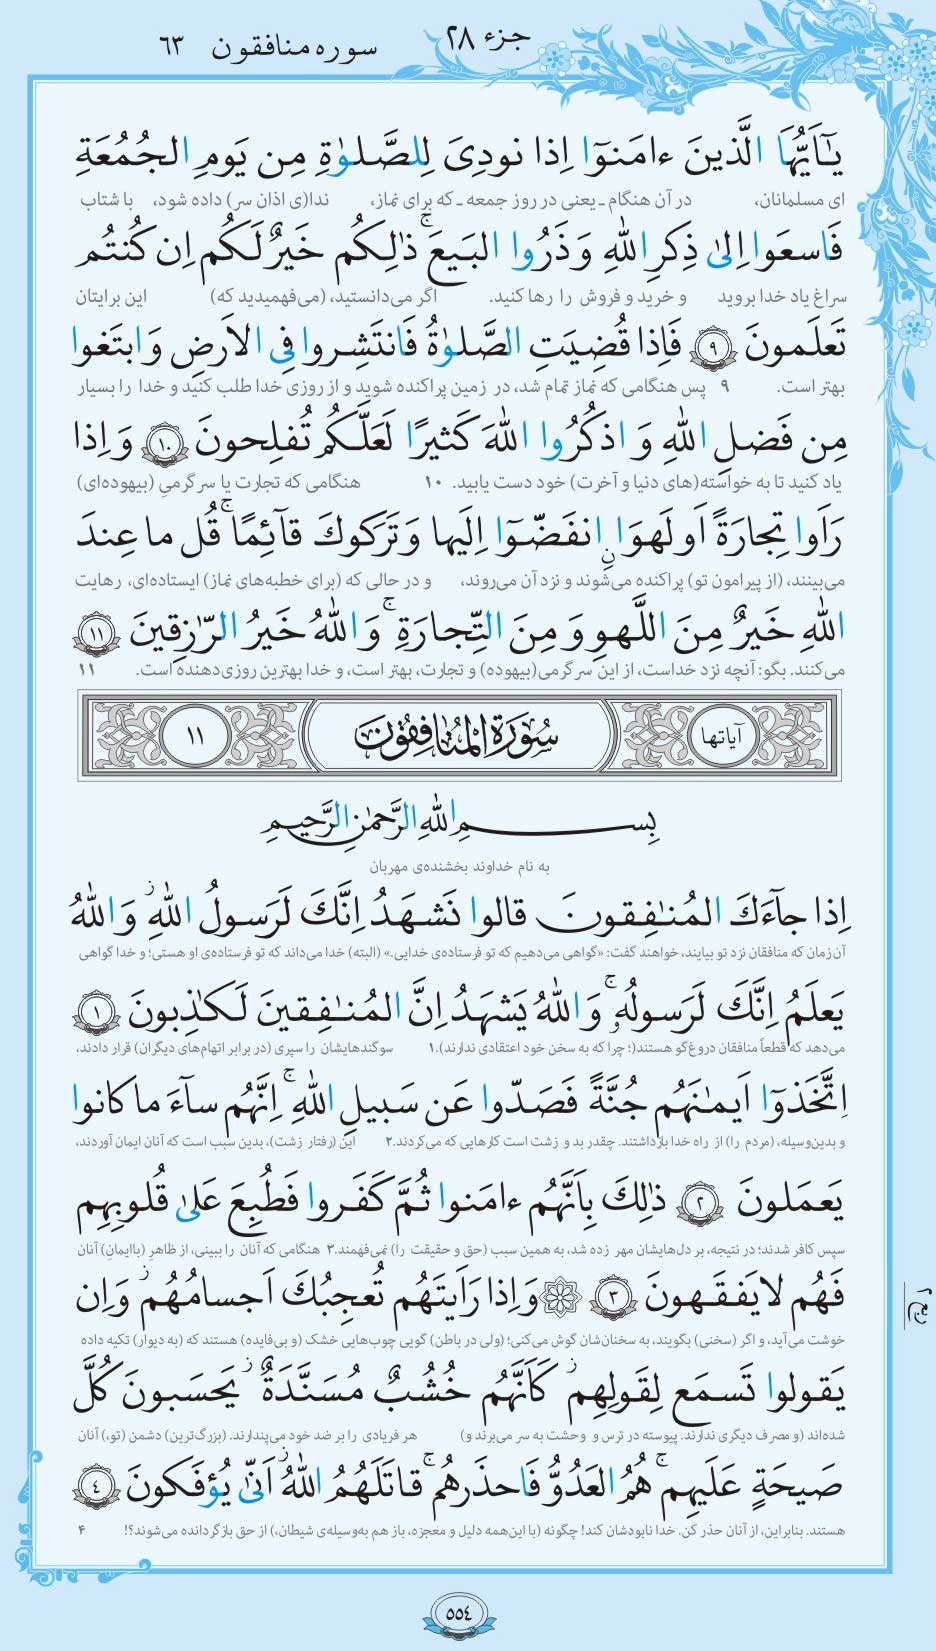 جزء ۲۸
سوره منافقون ۶۳
يٰٓاَيُّهَا الَّذينَ ءامَنوٓا اِذا نودِىَ لِلصَّلوٰةِ مِن يَومِ الجُمُعَةِ
ای مسلمانان، در آن هنگام ـ یعنی در روز جمعه ـ که برای نماز، ندا(ی اذان سر) داده شود، با شتاب
فَاسعَوا اِلىٰ ذِكرِ اللّٰهِ وَ ذَرُوا البَيعَ ۚ ذٰلِكُم خَيرٌ لَكُم اِن كُنتُم
سراغ یاد خدا بروید و خرید و فروش را رها کنید. اگر می‌دانستید، (می‌فهمیدید که) این برایتان
تَعلَمونَ ﴿٩﴾ فَاِذا قُضِيَتِ الصَّلوٰةُ فَانتَشِروا فِى الاَرضِ وَ ابتَغوا
بهتر است. ۹ پس هنگامی که نماز تمام شد، در زمین پراکنده شوید و از روزی خدا طلب کنید و خدا را بسیار
مِن فَضلِ اللّٰهِ وَ اذكُرُوا اللّٰهَ كَثيرًا لَعَلَّكُم تُفلِحونَ ﴿١٠﴾ وَ اِذا
یاد کنید تا به خواسته(های دنیا و آخرت) خود دست یابید. ۱۰ هنگامی که تجارت یا سرگرمیِ (بیهوده‌ای)
رَاَوا تِجارَةً اَو لَهوًا انفَضّوٓا اِلَيها وَ تَرَكوكَ قآئِمًا ۚ قُل ما عِندَ
می‌بینند، (از پیرامون تو) پراکنده می‌شوند و نزد آن می‌روند، و در حالی که (برای خطبه‌های نماز) ایستاده‌ای، رهایت
اللّٰهِ خَيرٌ مِنَ اللَّهوِ وَ مِنَ التِّجارَةِ ۚ وَ اللّٰهُ خَيرُ الرّٰزِقينَ ﴿١١﴾
می‌کنند. بگو: آنچه نزد خداست، از این سرگرمی(بیهوده) و تجارت، بهتر است، و خدا بهترین روزی‌دهنده است. ۱۱
آیاتها سُورَةُ المُنافِقُونَ ١١
بِسمِ اللّٰهِ الرَّحمٰنِ الرَّحيمِ
به نام خداوند بخشنده‌ی مهربان
اِذا جآءَكَ المُنٰفِقونَ قالوا نَشهَدُ اِنَّكَ لَرَسولُ اللّٰهِ ۘ وَ اللّٰهُ
آن زمان که منافقان نزد تو بیایند، خواهند گفت: «گواهی می‌دهیم که تو فرستاده‌ی خدایی.» (البته) خدا می‌داند که تو فرستاده‌ی او هستی؛ و خدا گواهی
يَعلَمُ اِنَّكَ لَرَسولُهٗ ۚ وَ اللّٰهُ يَشهَدُ اِنَّ المُنٰفِقينَ لَكٰذِبونَ ﴿١﴾
می‌دهد که قطعاً منافقان دروغ‌گو هستند(؛ چرا که به سخن خود اعتقادی ندارند).۱ سوگندهایشان را سپری (در برابر اتهام‌های دیگران) قرار دادند،
اِتَّخَذوٓا اَيمٰنَهُم جُنَّةً فَصَدّوا عَن سَبيلِ اللّٰهِ ۚ اِنَّهُم سآءَ ما كانوا
و بدین‌وسیله، (مردم را) از راه خدا بازداشتند. چقدر بد و زشت است کارهایی که می‌کردند.۲ این (رفتار زشت)، بدین سبب است که آنان ایمان آوردند،
يَعمَلونَ ﴿٢﴾ ذٰلِكَ بِاَنَّهُم ءامَنوا ثُمَّ كَفَروا فَطُبِعَ عَلىٰ قُلوبِهِم
سپس کافر شدند؛ در نتیجه، بر دل‌هایشان مهر زده شد، به همین سبب (حق و حقیقت را) نمی‌فهمند.۳ هنگامی که آنان را ببینی، از ظاهرِ (باایمانِ) آنان
فَهُم لا يَفقَهونَ ﴿٣﴾ ۞ وَ اِذا رَاَيتَهُم تُعجِبُكَ اَجسامُهُم ۖ وَ اِن
خوشت می‌آید، و اگر (سخنی) بگویند، به سخنان‌شان گوش می‌کنی؛ (ولی در باطن) گویی چوب‌هایی خشک (و بی‌فایده) هستند که (به دیوار) تکیه داده
ربع ۲
يَقولوا تَسمَع لِقَولِهِم ۖ كَاَنَّهُم خُشُبٌ مُسَنَّدَةٌ ۖ يَحسَبونَ كُلَّ
شده‌اند (و مصرف دیگری ندارند. پیوسته در ترس و وحشت به سر می‌برند و) هر فریادی را بر ضد خود می‌پندارند. (بزرگ‌ترین) دشمن (تو،) آنان
صَيحَةٍ عَلَيهِم ۚ هُمُ العَدُوُّ فَاحذَرهُم ۚ قاتَلَهُمُ اللّٰهُ ۖ اَنّىٰ يُؤفَكونَ ﴿٤﴾
هستند. بنابراین، از آنان حذر کن. خدا نابودشان کند! چگونه (با این‌همه دلیل و معجزه، باز هم به‌وسیله‌ی شیطان،) از حق بازگردانده می‌شوند؟! ۴
٥٥٤